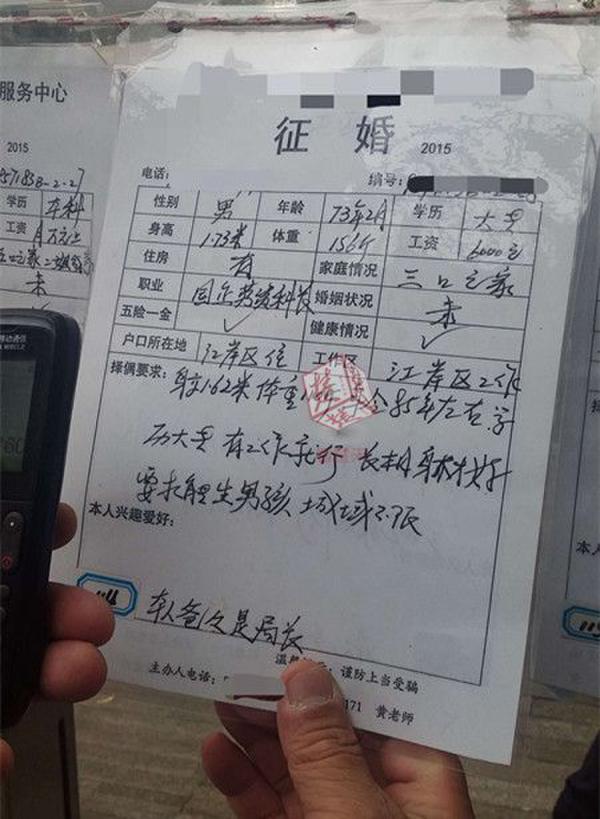 服务中心
2015
571838-2-27
学历 本科
工资 月万元上
未
征 婚 2015
电话: 编号:
性别 男 年龄 73年2月 学历 大专
身高 1.73米 体重 156斤 工资 6000元
住房 有 家庭情况 三口之家
职业 国企劳资科长 婚姻状况 未
五险一金 ✓ 健康情况 ✓
户口所在地 江岸区住 工作区 江岸区工作
择偶要求: 身高1.62米 体重 85年左右 学
历大专 有工作就行 长相身材好
要求能生男孩 城域不限
本人兴趣爱好:
本人爸爸是局长
116
115
温馨 : 谨防上当受骗
主办人电话: 171 黄老师